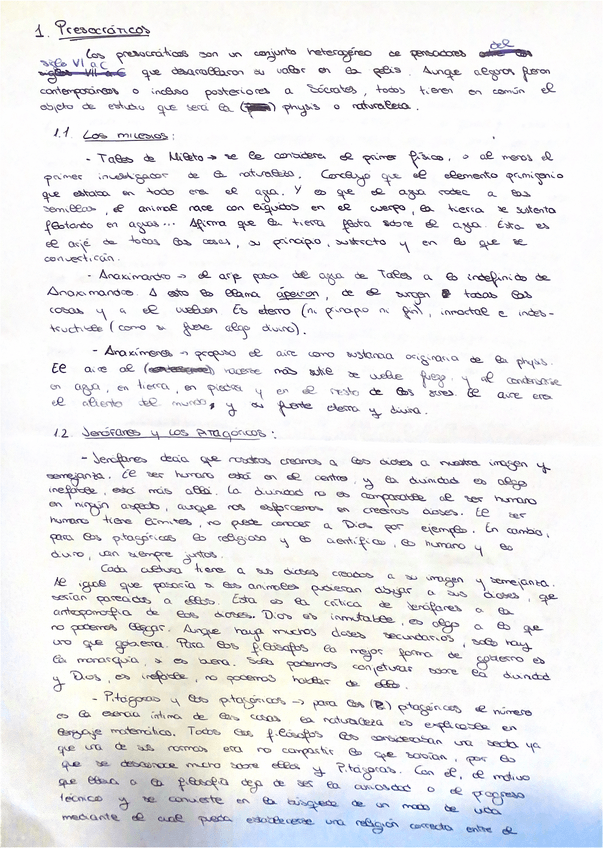 1. Presocráticos
Los presocráticos son un conjunto heterogéneo de pensadores del
siglo VI a.C que desarrollaron su valor en la polis. Aunque algunos fueron
contemporáneos o incluso posteriores a Sócrates, todos tienen en común el
objeto de estudio que será la physis o naturaleza.
1.1. Los milesios:
- Tales de Mileto → se le considera el primer físico, o al menos el
primer investigador de la naturaleza. Concluyó que el elemento primigenio
que estaba en todo era el agua. Y es que el agua rodea a las
semillas, el animal nace con líquidos en el cuerpo, la tierra se sustenta
flotando en aguas... Afirma que la tierra flota sobre el agua. Esta es
el arjé de todas las cosas, su principio, sustrato y en lo que se
convertirán.
- Anaximandro → el arje pasa del agua de Tales a lo indefinido de
Anaximandro. A esto lo llama ápeiron, de él surgen todas las
cosas y a él vuelven. Es eterno (ni principio ni fin), inmortal e indes-
tructible (como si fuese algo divino).
- Anaxímenes → propuso el aire como sustancia originaria de la physis.
El aire al hacerse más sutil se vuelve fuego, y al condensarse
en agua, en tierra, en piedra y en el resto de los seres. El aire era
el aliento del mundo, y su fuente eterna y divina.
1.2. Jenófanes y los pitagóricos:
- Jenófanes decía que nosotros creamos a los dioses a nuestra imagen y
semejanza. El ser humano está en el centro, y la divinidad es algo
inefable, está más allá. La divinidad no es comparable al ser humano
en ningún aspecto, aunque nos esforcemos en crearnos dioses. El ser
humano tiene límites, no puede conocer a Dios por ejemplo. En cambio,
para los pitagóricos lo religioso y lo científico, lo humano y lo
divino, van siempre juntos.
Cada cultura tiene a sus dioses creados a su imagen y semejanza.
Al igual que pasaría si los animales pudieran dibujar a sus dioses, que
serían parecidos a ellos. Esta es la crítica de Jenófanes a la
antropomorfia de los dioses. Dios es inmutable, es algo a lo que
no podemos llegar. Aunque haya muchos dioses secundarios, solo hay
uno que gobierna. Para los filósofos la mejor forma de gobierno es
la monarquía, si es buena. Solo podemos conjeturar sobre la divinidad
y Dios, es inefable, no podemos hablar de ello.
- Pitágoras y los pitagóricos → para los pitagóricos el número
es la esencia íntima de las cosas. La naturaleza es explicable en
lenguaje matemático. Todos los filósofos los consideraban una secta ya
que una de sus normas era no compartir lo que sabían, por lo
que se desconoce mucho sobre ellos y Pitágoras. Con él, el motivo
que lleva a la filosofía deja de ser la curiosidad o el progreso
técnico y se convierte en la búsqueda de un modo de vida
mediante el cual pueda establecerse una religión correcta entre el